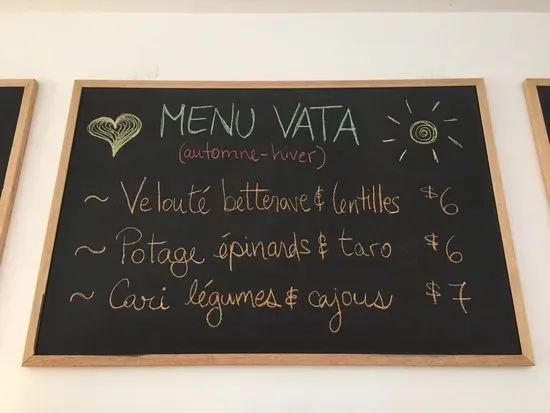 MENU VATA
(automne-hiver)
~ Velouté betterave & lentilles $6
~ Potage épinards & taro $6
~ Cari légumes & cajous $7